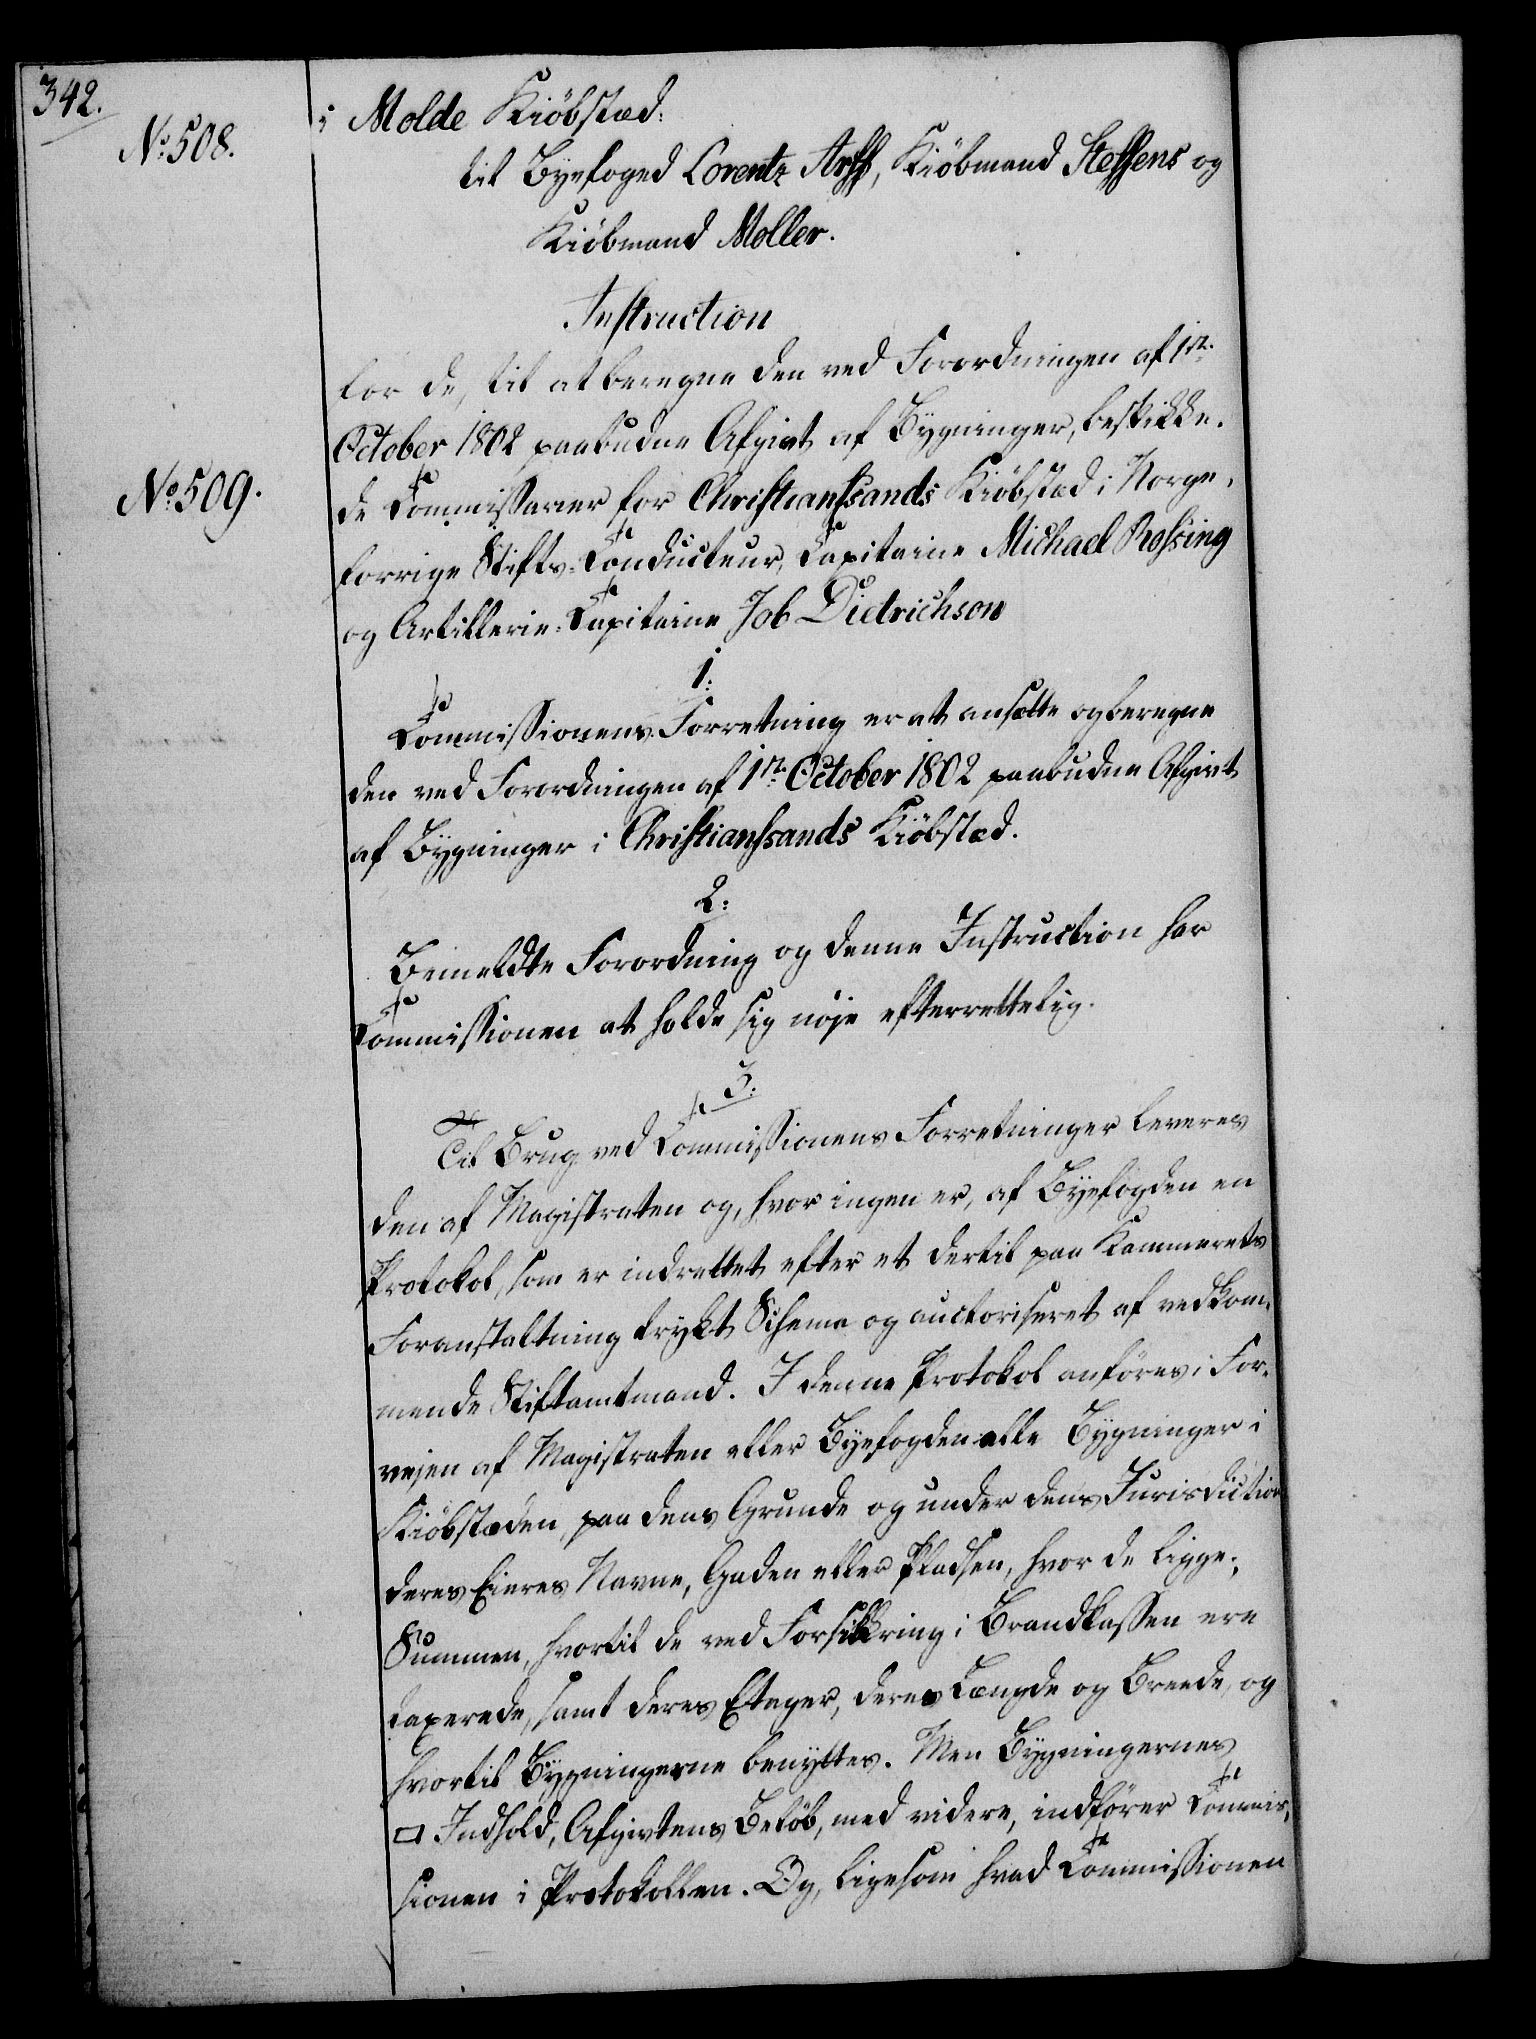 342.
No 508.
i Molde Kiöbstæd:
til Byefoged Lorentz Arff, Kiöbmand Steffens og
Kiöbmand Møller.
Instruction
for de, til at beregne den ved Forordningen af 1te
October 1802 paabudne Afgivt af Bygninger, beskikke-
No 509.
de Commissairer for Christianssands Kiöbstæd i Norge,
forrige Stifts-Conducteur, Capitaine Michael Rossing
og Artillerie-Capitaine Job Dietrichson
1:
Commissionens Forretning er at ansætte og beregne
den ved Forordningen af 1te October 1802 paabudne Afgivt
af Bygninger i Christianssands Kiöbstæd.
2:
Bemeldte Forordning og denne Instruction har
Commissionen at holde sig nøje efterrettelig.
3:
Til Brug ved Commissionens Forretninger leveres
den af Magistraten og, hvor ingen er, af Byefogden en
Protokol, som er indrettet efter et dertil paa Kammerets
Foranstaltning trykt Schema og auctoriseret af vedkom-
mende Stiftamtmand. I denne Protokol anföres i For-
vejen af Magistraten eller Byefogden alle Bygninger i
Kiöbstæden, paa dens Grunde og under dens Jurisdiction
deres Eieres Navne, Gaden eller Pladsen, hvor de ligge;
Summen, hvortil de ved Forsikkring i Brandkassen ere
taxerede, samt deres Etager, deres Længde og Breede, og
hvortil Bygningerne benyttes. Men Bygningernes
□ Indhold, Afgivtens Belöb, med videre, indförer Commis-
sionen i Protokollen. Og, ligesom hvad Commissionen